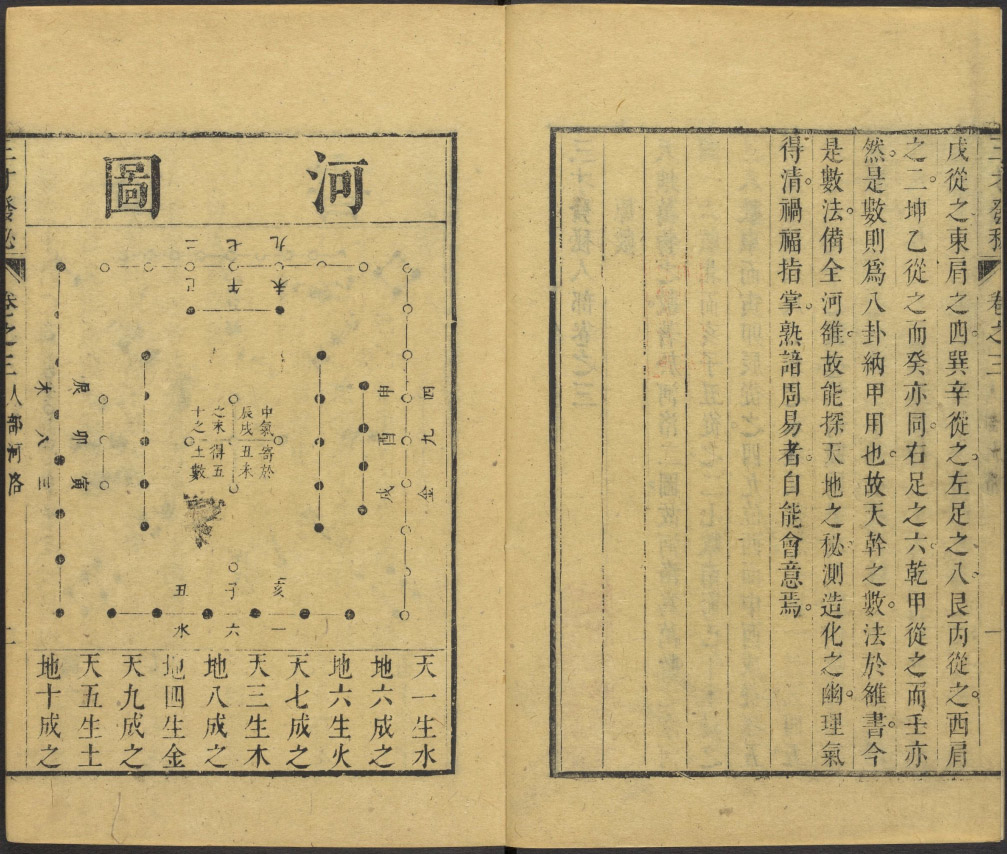 三才發秘 卷之三
戊從之東肩之四巽辛從之左足之八艮丙從之西肩
之二坤乙從之而癸亦同右足之六乾甲從之而壬亦
然是數則爲八卦納甲用也故天幹之數法於雒書今
是數法備全河雒故能探天地之秘測造化之幽理氣
得清禍福指掌熟諳周易者自能會意焉
一
河圖
九 七 二
未 午 巳
四 九 金
申 酉 戌
中氣寄於
辰戌丑未
之末得五
十之土數
庚 卯 寅
木 八 三
亥 子 丑
一 六 水
天一生水
地六成之
地六生火
天七成之
天三生木
地八成之
地四生金
天九成之
天五生土
地十成之
三才發秘 卷之三 人部河洛 二